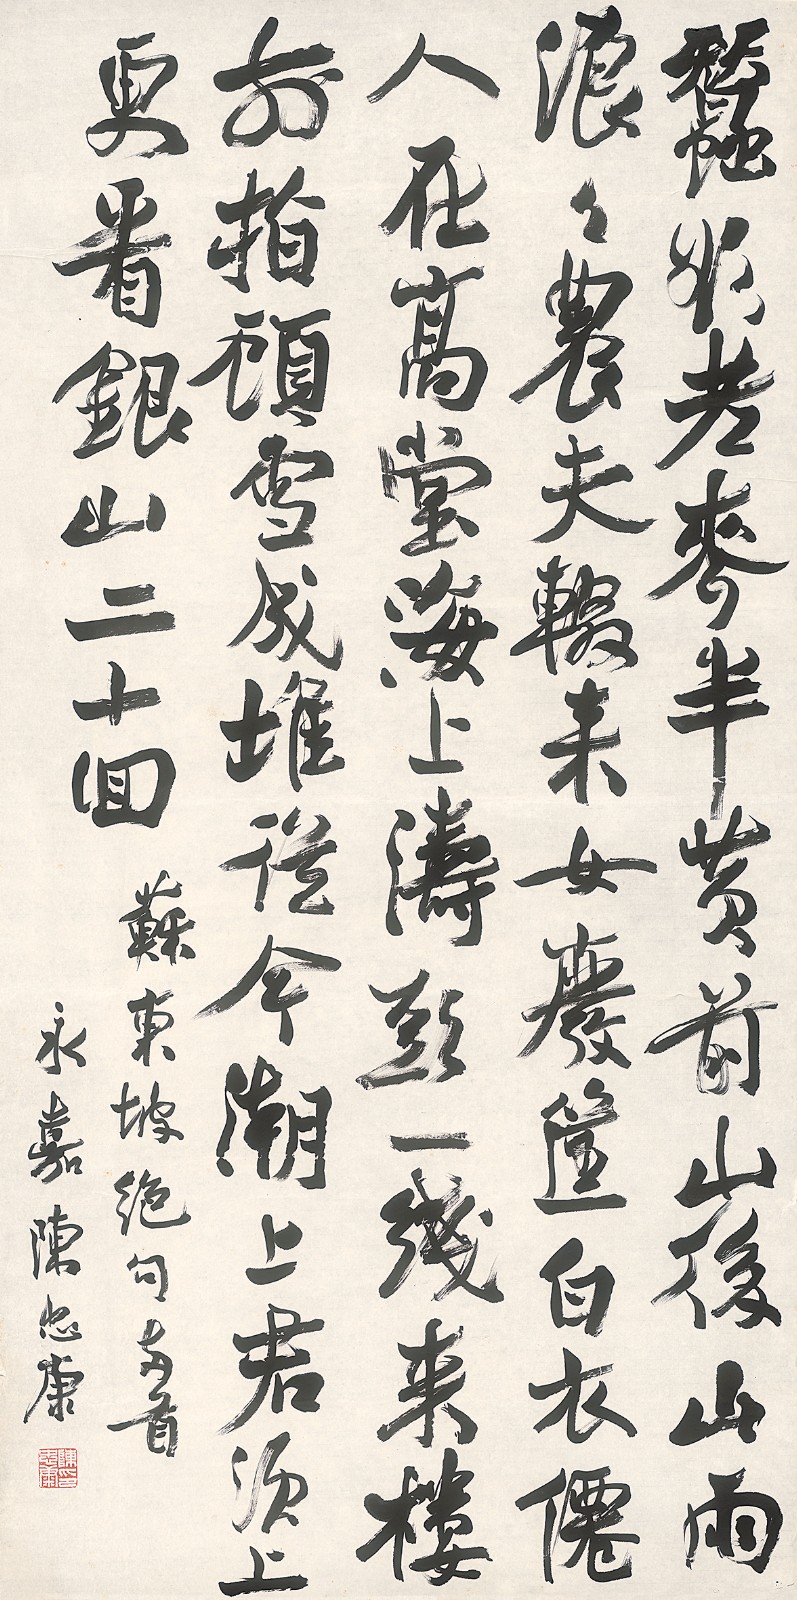 蠶欲老麥半黃前山後山雨
浪々農夫輟耒女廢筐白衣僊
人在高堂海上濤頭一綫來樓
前指顧雪成堆從今潮上君須上
更看銀山二十回
蘇東坡絕句両首
永嘉陳忠康